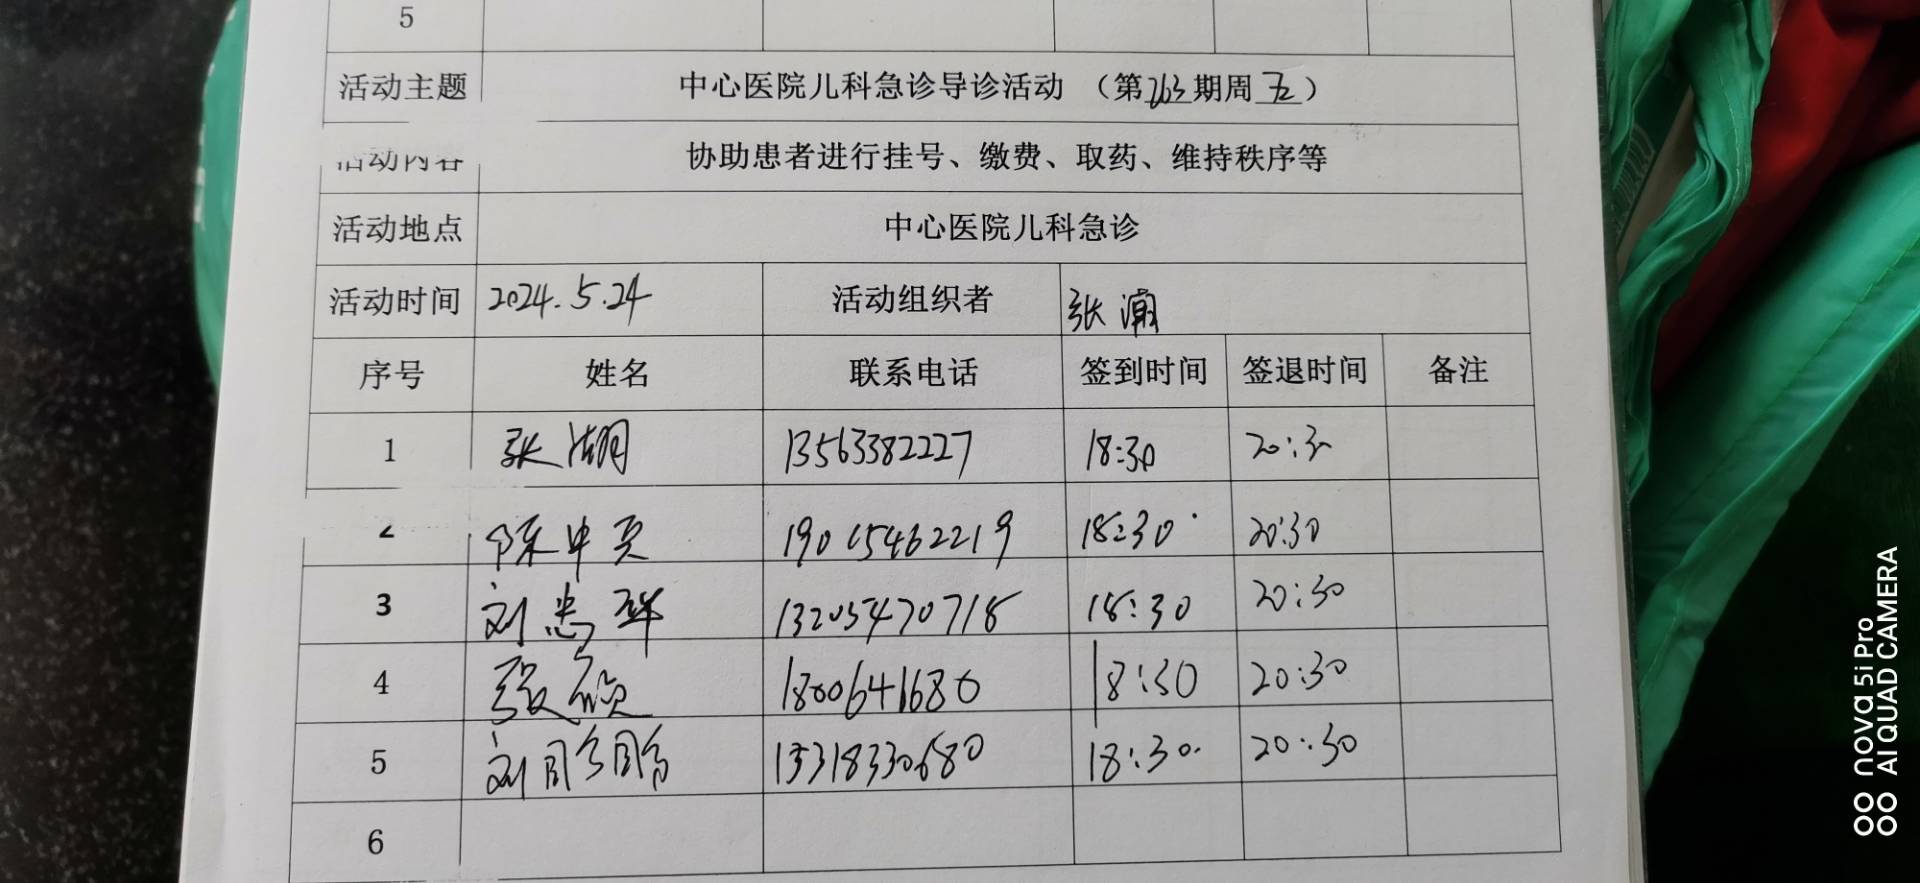 5
活动主题 中心医院儿科急诊导诊活动 （第263期周五）
活动内容 协助患者进行挂号、缴费、取药、维持秩序等
活动地点 中心医院儿科急诊
活动时间 2024.5.24 活动组织者 张潮
序号 姓名 联系电话 签到时间 签退时间 备注
1 张潮 13563382227 18:30 20:30
2 陈申 19015462219 18:30 20:30
3 刘忠 13205470718 18:30 20:30
4 张硕 1800641680 18:30 20:30
5 刘 13318330680 18:30 20:30
6
nova 5i Pro
AI QUAD CAMERA